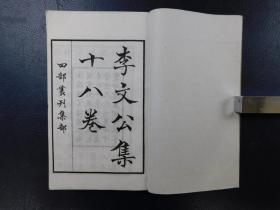 李文公集
十八卷
四部叢刊集部